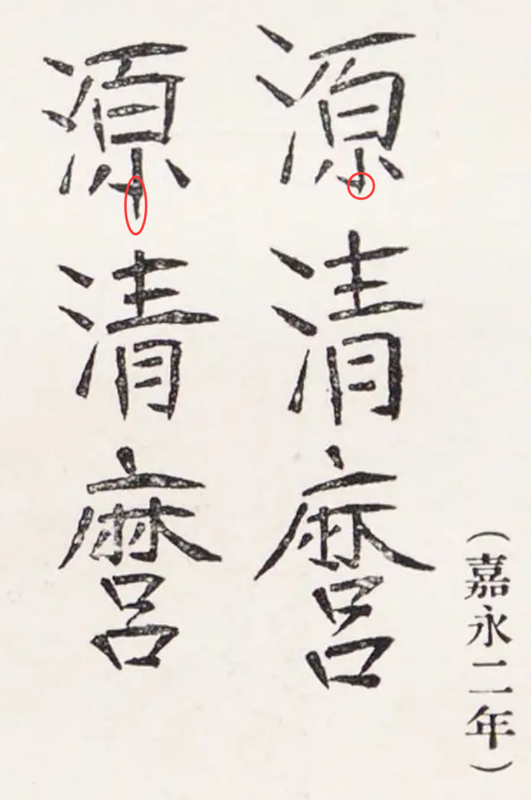 （嘉永二年）
源清麿
源清麿